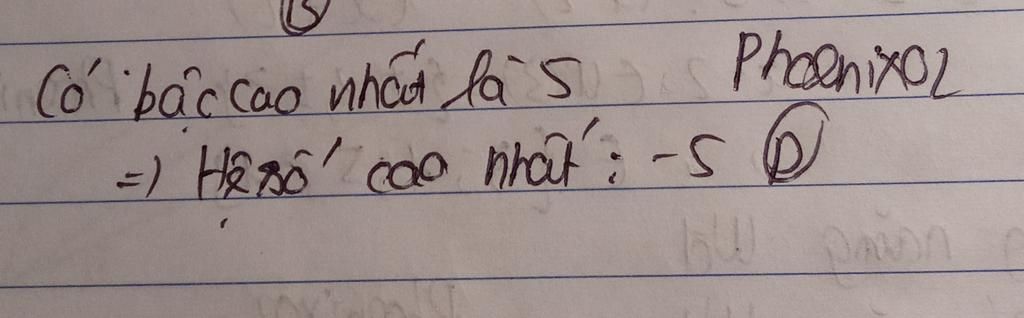 Có bậc cao nhất là 5 PhoenixOL
=) Hệ số cao nhất : -5 D